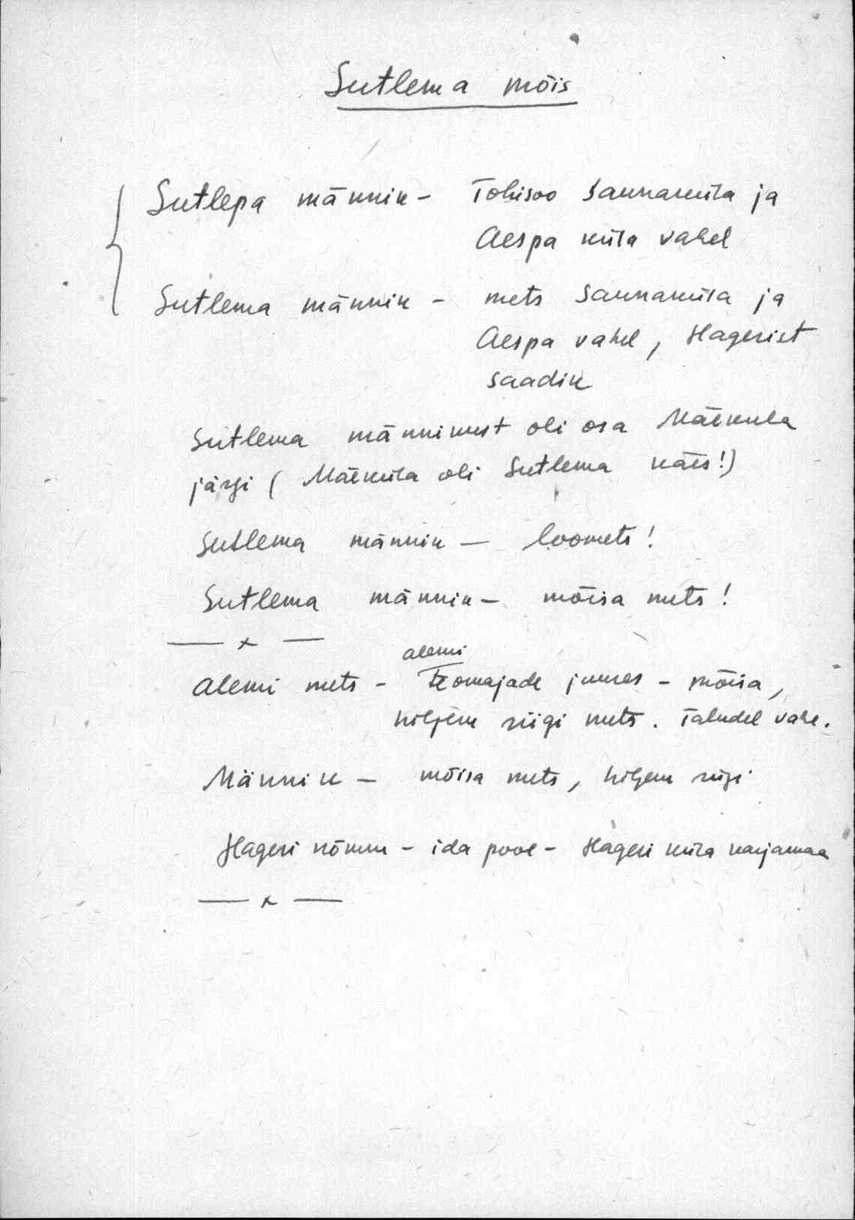 Sutlema mõis
Sutlepa männik - Tohisoo Saunaküla ja
Aespa küla vahel
Sutlema männik - mets Saunaküla ja
Aespa vahel, Hagerist
saadik
Sutlema männikust oli osa Mäeküla
järgi (Mäeküla oli Sutlema käes!)
Sutlema männik — loomets!
Sutlema männik - mõisa mets!
— x —
alemi
Alemi mets - juures - mõisa,
hiljem riigi mets. Taludel vahe.
Männik - mõisa mets, hiljem riigi
Hageri nõmm - ida pool - Hageri küla karjamaa
— x —